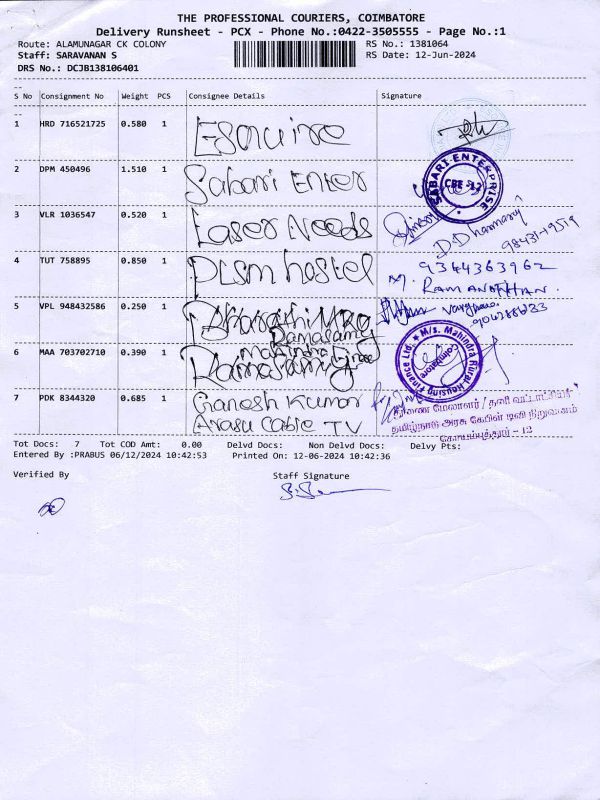 THE PROFESSIONAL COURIERS, COIMBATORE
Delivery Runsheet - PCX - Phone No.:0422-3505555 - Page No.:1
Route: ALAMUNAGAR CK COLONY RS No.: 1381064
Staff: SARAVANAN S RS Date: 12-Jun-2024
DRS No.: DCJB138106401
S No Consignment No Weight PCS Consignee Details Signature
1 HRD 716521725 0.580 1 Esquire
2 DPM 450496 1.510 1 Sabari Enter
SABARI ENTERPRISE CBE-12
3 VLR 1036547 0.520 1 Laser Needs
D.Dharmaraj
98431-19519
4 TUT 758895 0.850 1 DLSM hostel
9344363962
RAMANATHAN
5 VPL 948432586 0.250 1
Ramasamy
6 MAA 703702710 0.390 1 Mahindra
Ramasamy
M/s. Mahindra Rural Housing Finance Ltd. Coimbatore
7 PDK 8344320 0.685 1 Ganesh Kumar
Arasu Cable TV
துணை மேலாளர் / தனி வட்டாட்சியர்
தமிழ்நாடு அரசு கேபிள் டிவி நிறுவனம்
கோயம்புத்தூர் - 12
Tot Docs: 7 Tot COD Amt: 0.00 Delvd Docs: Non Delvd Docs: Delvy Pts:
Entered By :PRABUS 06/12/2024 10:42:53 Printed On: 12-06-2024 10:42:36
Verified By Staff Signature